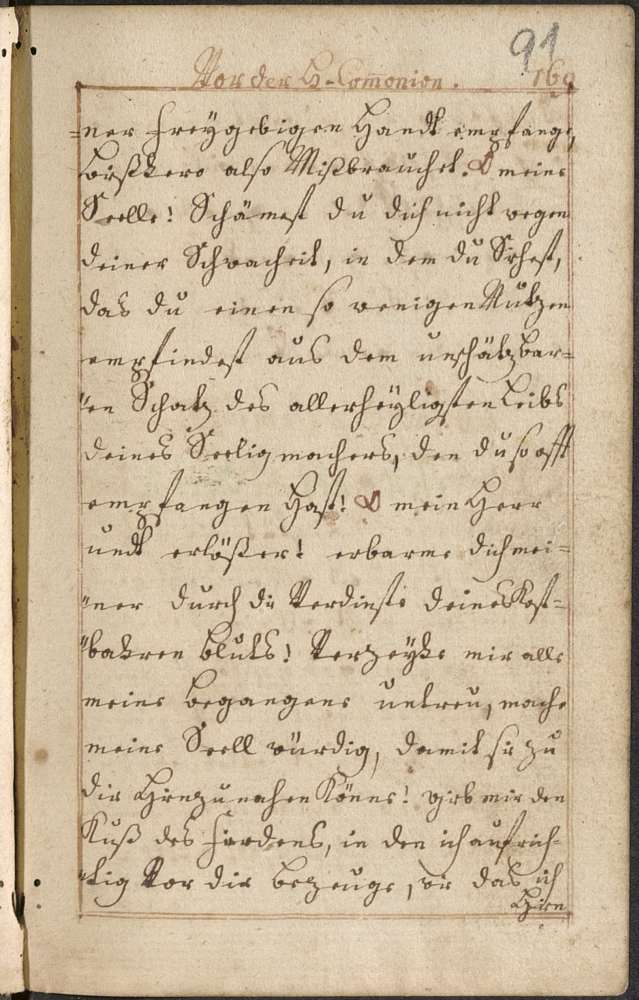 91
Vor der H-Comonion. 169
=ner freygebigen Handt empfange,
also Mißbrauchet. O meine
Seelle! Schämest du dich nicht wegen
deiner Schwacheit, in dem du Sihest,
das du einen so wenigen Nutzen
empfindest aus dem unschätzbar=
"en Schatz des allerheyligsten Leibs
deines Seeligmachers, den du so offt
empfangen hast! O mein Herr
undt erlößer! erbarme dich mei=
"ner durch die Verdienste deines Kost=
"bahren bluts! Verzeyhe mir alle
meine begangene untreu, mache
meine Seell würdig, damit sie zu
dir hinzunahen Könne! gieb mir den
Kuß des friedens, in den ich aufrich=
"tig Vor dir bezeuge, wie das ich
hien